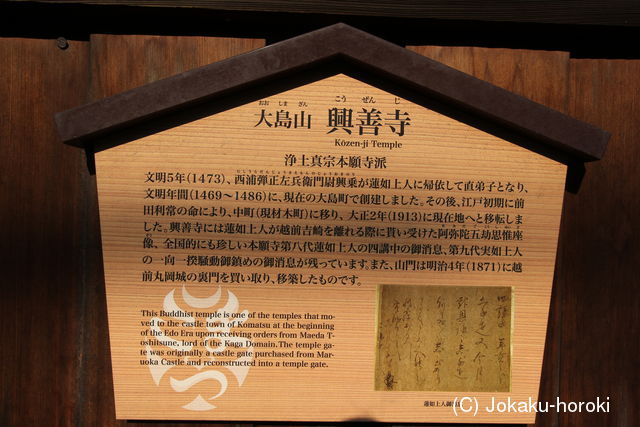 おおしまざん こうぜんじ
大島山 興善寺
Kōzen-ji Temple
浄土真宗本願寺派
文明5年(1473)、西浦弾正左兵衛門尉興乗が蓮如上人に帰依して直弟子となり、
文明年間(1469～1486)に、現在の大島町で創建しました。その後、江戸初期に前
田利常の命により、中町(現材木町)に移り、大正2年(1913)に現在地へと移転しま
した。興善寺には蓮如上人が越前吉崎を離れる際に貰い受けた阿弥陀五劫思惟座
像、全国的にも珍しい本願寺第八代蓮如上人の四講中の御消息、第九代実如上人
の一向一揆騒動御鎮めの御消息が残っています。また、山門は明治4年(1871)に越
前丸岡城の裏門を買い取り、移築したものです。
This Buddhist temple is one of the temples that mo-
ved to the castle town of Komatsu at the beginning
of the Edo Era upon receiving orders from Maeda T-
oshitsune, lord of the Kaga Domain.The temple ga-
te was originally a castle gate purchased from Mar-
uoka Castle and reconstructed into a temple gate.
蓮如上人御消息
(C) Jokaku-horoki